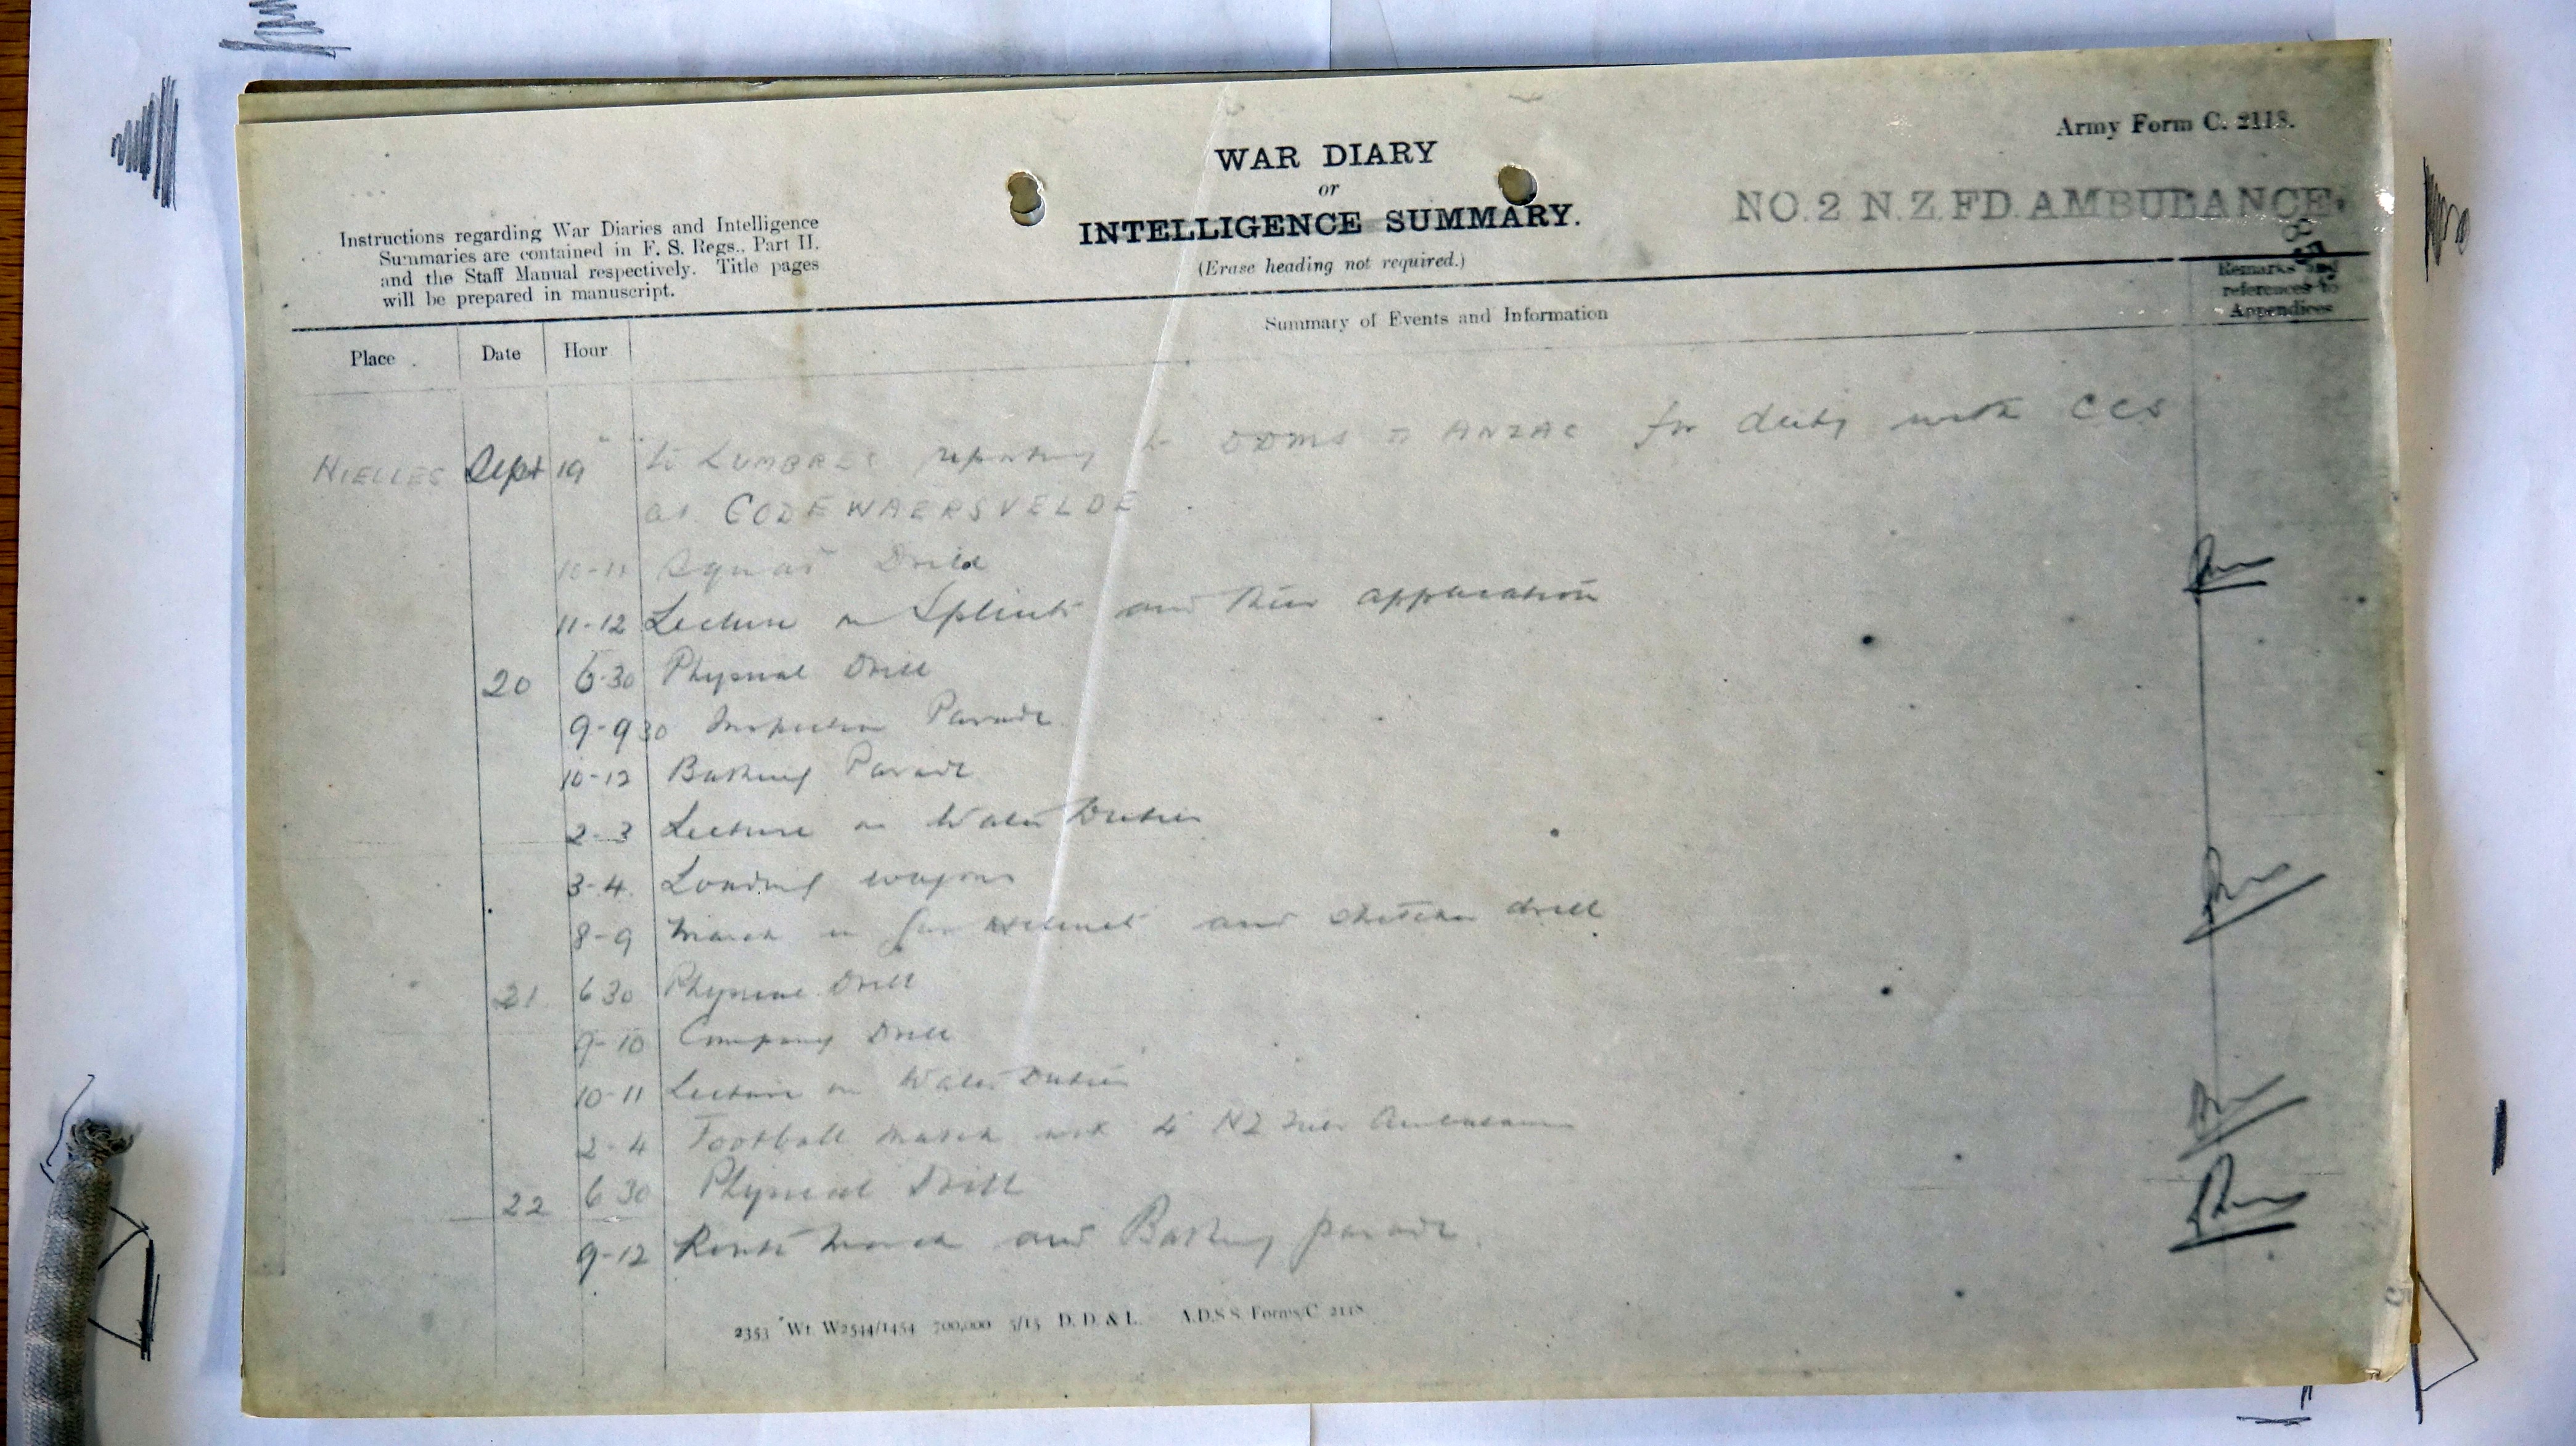 Army Form C. 2118.
WAR DIARY
or
INTELLIGENCE SUMMARY.
(Erase heading not required.)
NO. 2 N.Z. FD. AMBULANCE.
Instructions regarding War Diaries and Intelligence
Summaries are contained in F. S. Regs., Part II.
and the Staff Manual respectively. Title pages
will be prepared in manuscript.
Place Date Hour Summary of Events and Information Remarks and references to Appendices
NIELLES Sept 19 to LUMBRES reporting to DDMS ANZAC for duty with CCS
at GODEWAERSVELDE
10-11 Squad Drill
11-12 Lecture on Splints and their application
20 6-30 Physical Drill
9-9 30 Inspection Parade
10-12 Bathing Parade
2-3 Lecture on Water Duties
3-4 Loading wagons
8-9 March in Gas Helmets and Stretcher drill
21 6 30 Physical Drill
9-10 Company Drill
10-11 Lecture on Water Duties
2-4 Football match with 4 NZ Ambulance
22 6 30 Physical Drill
9-12 Route March and Bathing parade
2353 Wt. W2544/1454 700,000 5/15 D. D. & L. A.D.S.S. Forms/C. 2118.